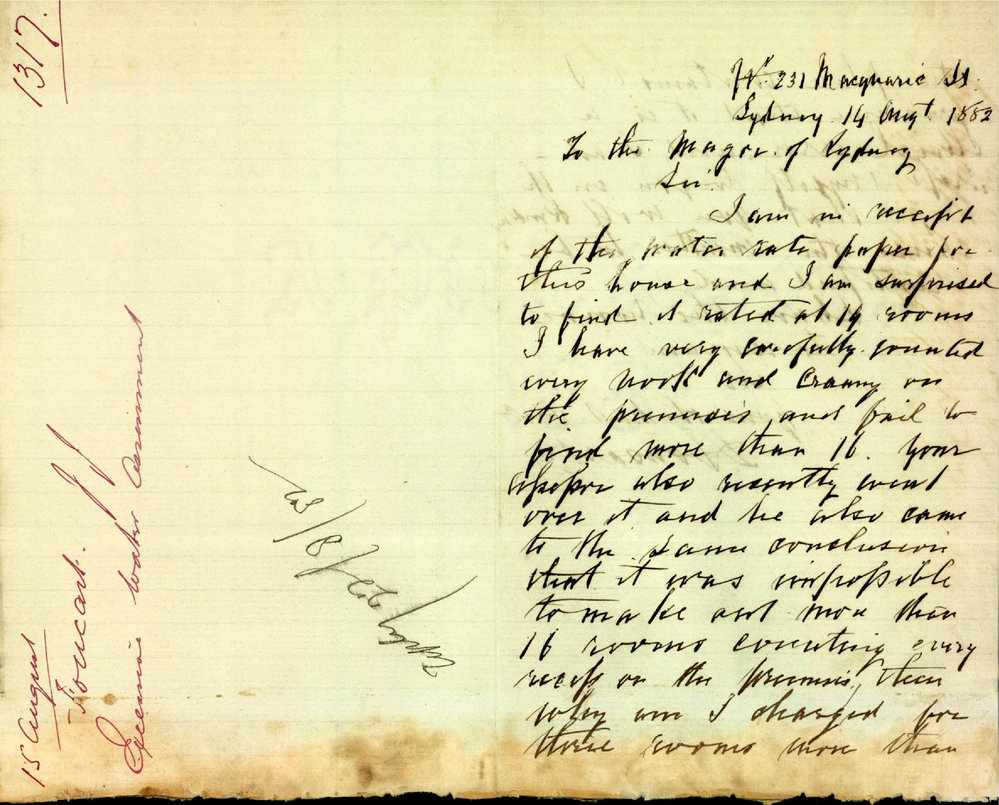 1317.
15 August
Foucart. J J
Queries Water Assessment
22/8/82
No. 231 Macquarie St.
Sydney 14 Augt. 1882
To the Mayor of Sydney
Sir.
I am in receipt
of the water rate paper for
this house and I am surprised
to find it rated at 19 rooms
I have very carefully counted
every nook and cranny on
the premises and fail to
find more than 16. Your
assessor also recently went
over it and he also came
to the same conclusion
that it was impossible
to make out more than
16 rooms counting every
recess on the premises, then
why am I charged for
three rooms more than